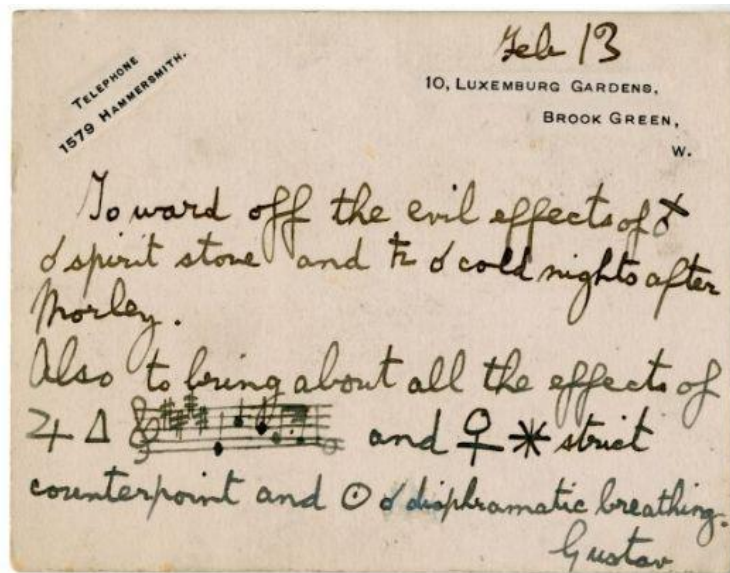 Feb 13
TELEPHONE
1579 HAMMERSMITH.
10, LUXEMBURG GARDENS,
BROOK GREEN,
W.
To ward off the evil effects of ♂
☌ spirit stove and ♄ ☌ cold nights after
Morley.
Also to bring about all the effects of
♃ △ and ♀ ⚹ strict
counterpoint and ☉ ☌ diaphramatic breathing.
Gustav